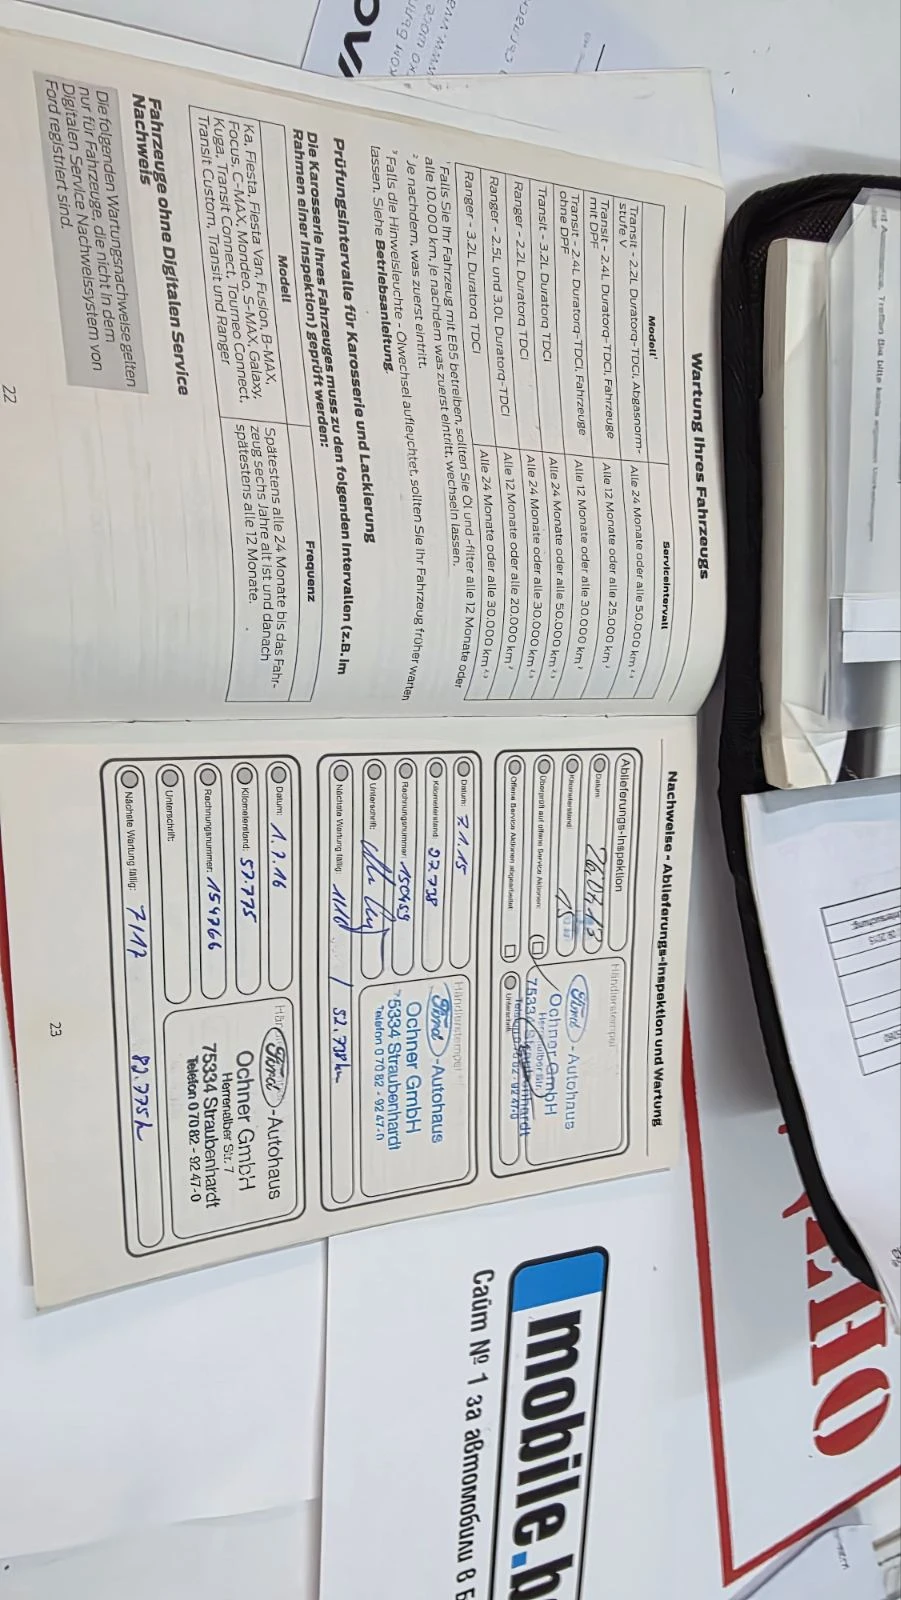 Wartung Ihres Fahrzeugs
Modell¹ Serviceintervall
Transit - 2.2L Duratorq-TDCi, Abgasnorm-
stufe V Alle 24 Monate oder alle 50.000 km ²,³
Transit - 2.4L Duratorq-TDCi, Fahrzeuge
mit DPF Alle 12 Monate oder alle 25.000 km ²
Transit - 2.4L Duratorq-TDCi, Fahrzeuge
ohne DPF Alle 12 Monate oder alle 30.000 km ²
Transit - 3.2L Duratorq TDCi, Alle 24 Monate oder alle 50.000 km ²,³
Ranger - 2.2L Duratorq TDCi Alle 24 Monate oder alle 30.000 km ²,³
Ranger - 2.5L und 3.0L Duratorq-TDCi Alle 12 Monate oder alle 20.000 km ²
Ranger - 3.2L Duratorq TDCi Alle 24 Monate oder alle 30.000 km ²,³
¹ Falls Sie Ihr Fahrzeug mit E85 betreiben, sollten Sie Öl und -filter alle 12 Monate oder
alle 10.000 km, je nachdem was zuerst eintritt, wechseln lassen.
² Je nachdem, was zuerst eintritt.
³ Falls die Hinweisleuchte - Ölwechsel aufleuchtet, sollten Sie Ihr Fahrzeug früher warten
lassen. Siehe Betriebsanleitung.
Prüfungsintervalle für Karosserie und Lackierung
Die Karosserie Ihres Fahrzeuges muss zu den folgenden Intervallen (z.B. im
Rahmen einer Inspektion) geprüft werden:
Modell Frequenz
Ka, Fiesta, Fiesta Van, Fusion, B-MAX, Spätestens alle 24 Monate bis das Fahr-
Focus, C-MAX, Mondeo, S-MAX, Galaxy, zeug sechs Jahre alt ist und danach
Kuga, Transit Connect, Tourneo Connect, spätestens alle 12 Monate.
Transit Custom, Transit und Ranger
Fahrzeuge ohne Digitalen Service
Nachweis
Die folgenden Wartungsnachweise gelten
nur für Fahrzeuge, die nicht in dem
Digitalen Service Nachweissystem von
Ford registriert sind.
22
Nachweise - Ablieferungs-Inspektion und Wartung
Ablieferungs-Inspektion
Datum:
Kilometerstand: 15
Überprüft auf offene Service Aktionen:
Offene Service Aktionen abgearbeitet:
Unterschrift:
Händlerstempel
Ford -Autohaus
Ochner GmbH
Herrenalber Str. 7
75334 Straubenhardt
Telefon 0 70 82 - 92 47-0
Datum: 7.1.15
Kilometerstand: 22.738
Rechnungsnummer: 150459
Unterschrift:
Nächste Wartung fällig: 1/16 / 52.738 km
Händlerstempel
Ford -Autohaus
Ochner GmbH
75334 Straubenhardt
Telefon 0 70 82 - 92 47-0
Datum: 1.7.16
Kilometerstand: 57.775
Rechnungsnummer: 154766
Unterschrift:
Nächste Wartung fällig: 7/17 82.775 k
Ford -Autohaus
Ochner GmbH
Herrenalber Str. 7
75334 Straubenhardt
Telefon 0 70 82 - 92 47-0
23
mobile.b
Сайт № 1 за автомобили в Б
ЕНО